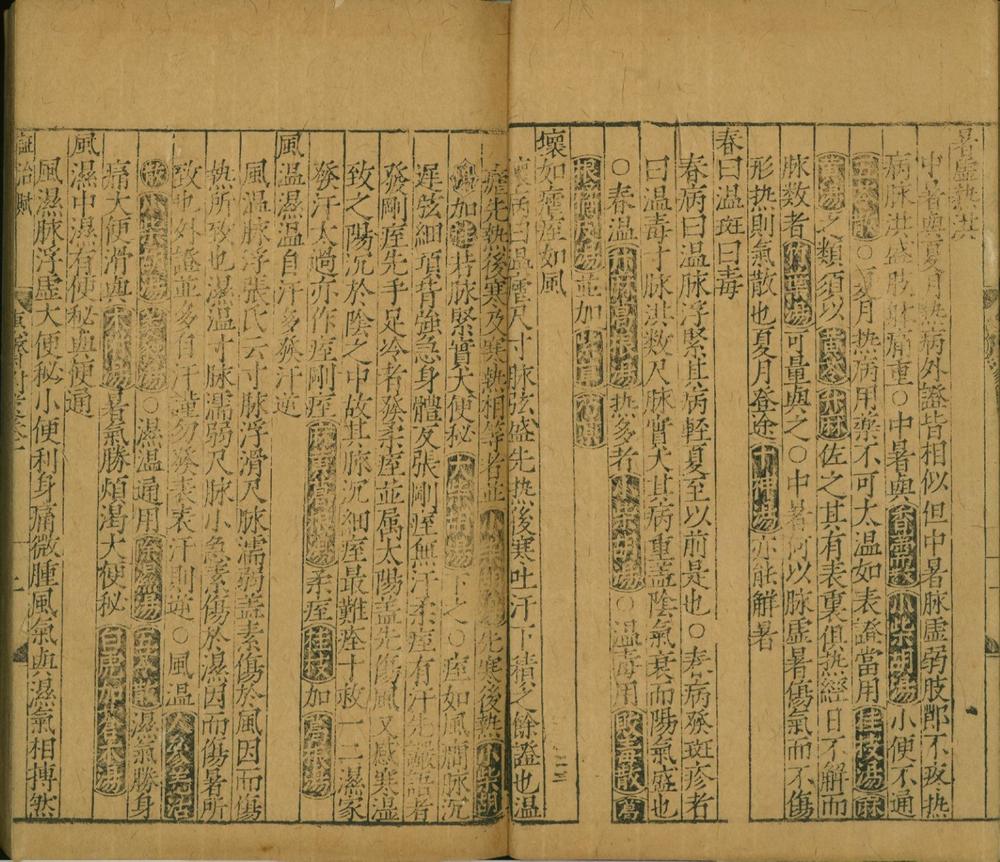 暑虛熱洪
中暑與夏月熱病外證皆相似但中暑脉虛弱肢節不疼热
病脉洪盛肢節痛重○中暑與香薷散小柴胡湯小便不通
五苓散○夏月热病用藥不可太温如表證當用桂枝湯麻
黄湯之類須以黄芩升麻佐之其有表裏俱热經日不解而
脉数者竹葉湯可量與之○中暑何以脉虛暑傷氣而不傷
形热則氣散也夏月登途十神湯亦能解暑
春曰温斑曰毒
春病曰温脉浮緊其病輕夏至以前是也○春病發斑疹者
曰温毒寸脉洪数尺脉實大其病重盖陰氣衰而陽氣盛也
○春温升麻葛根湯热多者小柴胡湯○温毒用敗毒散葛
根湯並加
壞如瘧痓如風
壞病曰温瘧尺寸脉弦盛先热後寒吐汗下積乏餘證也温
瘧先热後寒及寒热相等者並小柴胡湯先寒後热小柴胡
湯加桂若脉緊實大便秘大柴胡湯下之○痓如風癎脉沉
遲弦細項背強急身體反張剛痓無汗柔痓有汗先譫語者
發剛痓先手足冷者發柔痓並属太陽盖先傷風又感寒温
致之陽沉於陰之中故其脉沉細痓最難痊十救一二濕家
發汗太過亦作痓剛痓麻黄葛根湯柔痓桂枝加葛根湯
風温濕温自汗多發汗逆
風温脉浮張氏云寸脉浮滑尺脉濡弱盖素傷於風因而傷
热所致也濕温寸脉濡弱尺脉小急素傷於濕因而傷暑所
致中外證並多自汗謹勿發表表汗則逆○風温人參羗活
散小柴胡湯○濕温通用除濕湯五苓散濕氣勝身
痛大便滑與术附湯暑氣勝煩渴大便秘白虎加蒼术湯
風濕中濕有便秘與便通
風濕脉浮虛大便秘小便利身痛微腫風氣與濕氣相搏然
証治賦